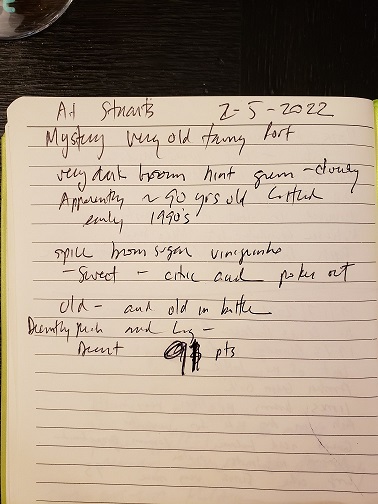 At Stuart's 2-5-2022
Mystery very old tawny Port
very dark brown hint green - cloudy
Apparently ~ 90 yrs old bottled
early 1990's
spice brown sugar
- Sweet - citric acid pokes out
Old - and old in bottle
Decently rich and long -
Decent 91 pts